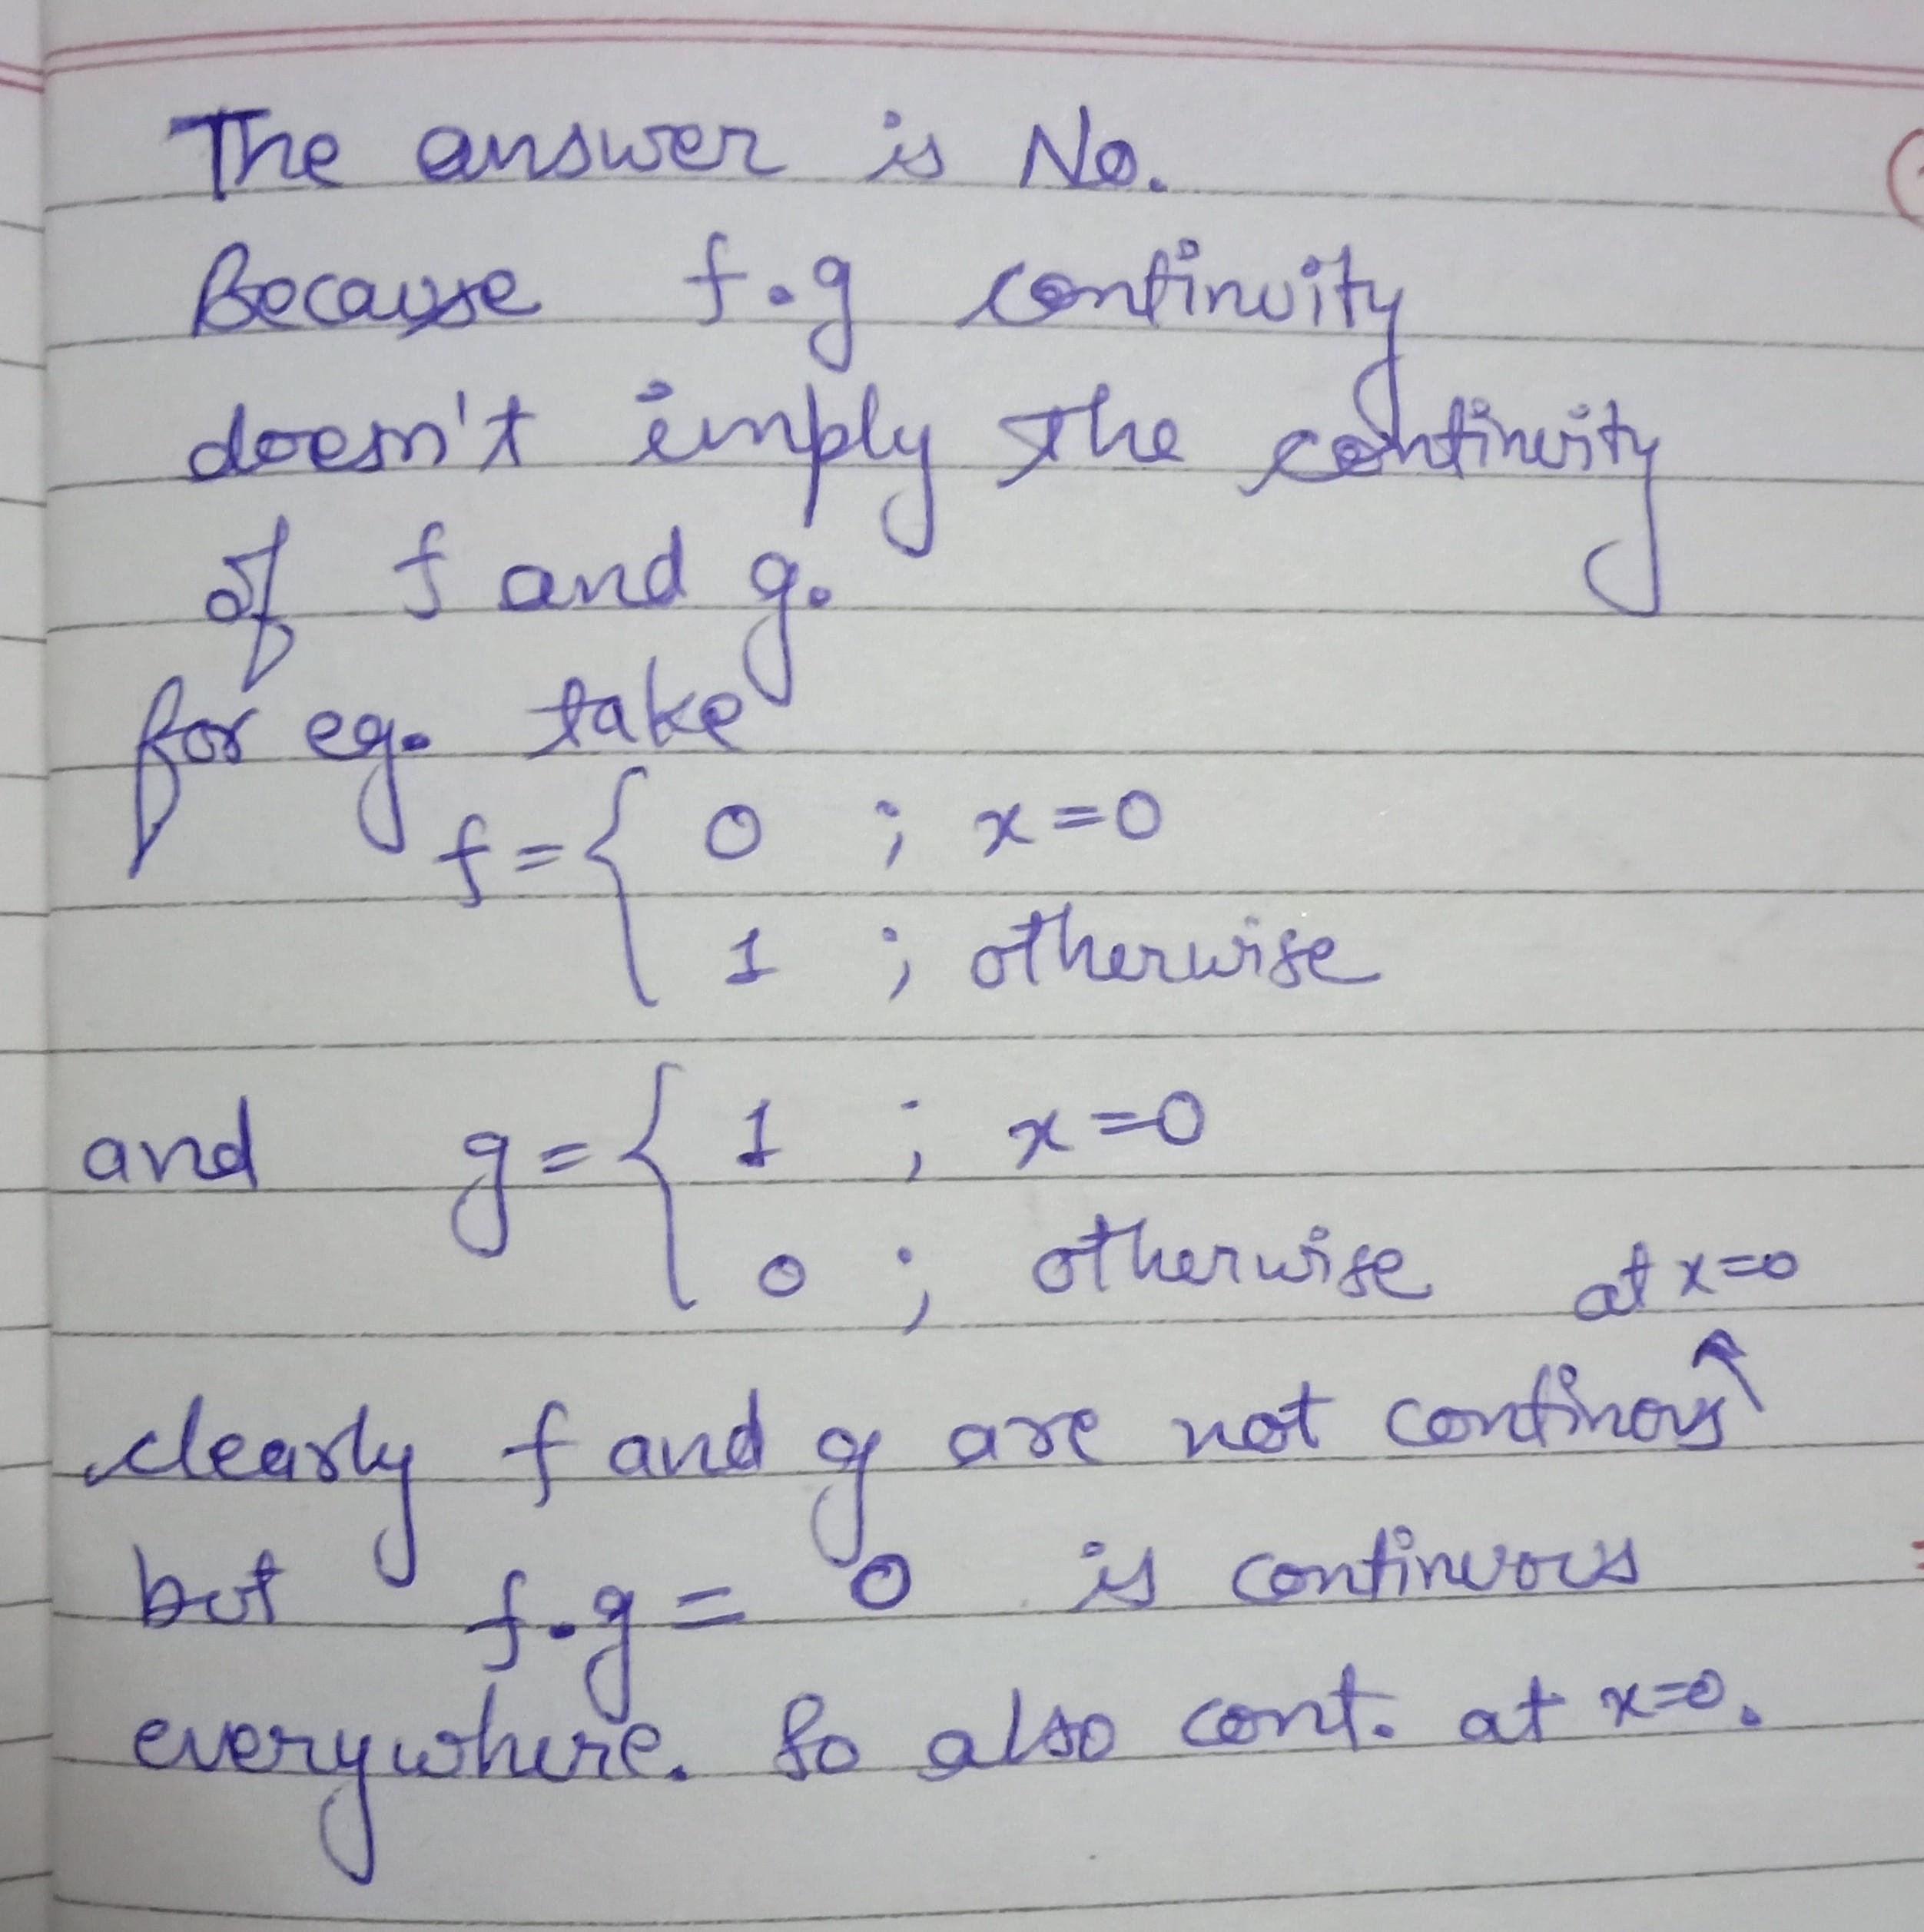 The answer is No.
Because f.g continuity
doesn't imply the continuity
of f and g.
for eg. take
f = { 0 ; x=0
1 ; otherwise
and g = { 1 ; x=0
0 ; otherwise at x=0
clearly f and g are not continous
but f.g = 0 is continuous
everywhere. So also cont. at x=0.